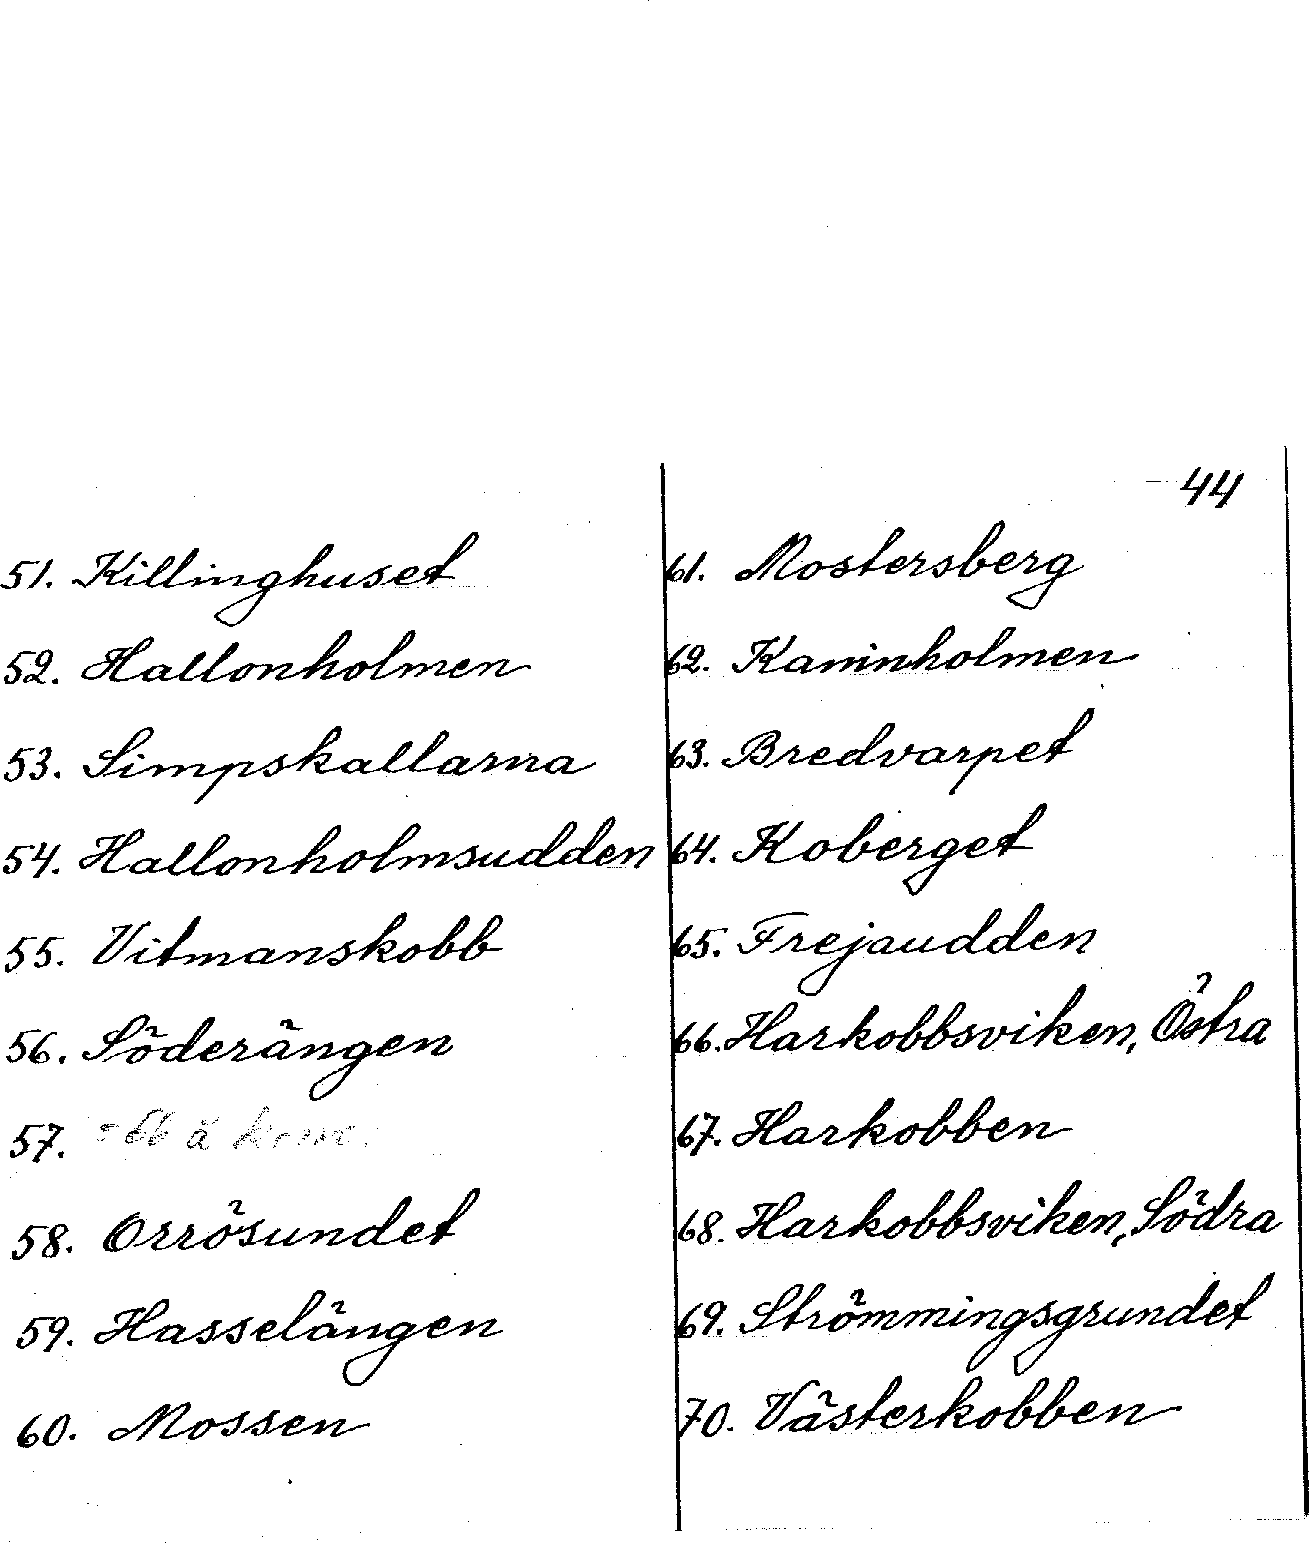 44
51. Killinghuset
52. Hallonholmen
53. Simpskallarna
54. Hallonholmsudden
55. Vitmanskobb
56. Söderängen
57. = 66 å
58. Orrösundet
59. Hasselängen
60. Mossen
61. Mostersberg
62. Kaninholmen
63. Bredvarpet
64. Koberget
65. Frejaudden
66. Harkobbsviken, Östra
67. Harkobben
68. Harkobbsviken, Södra
69. Strömmingsgrundet
70. Västerkobben